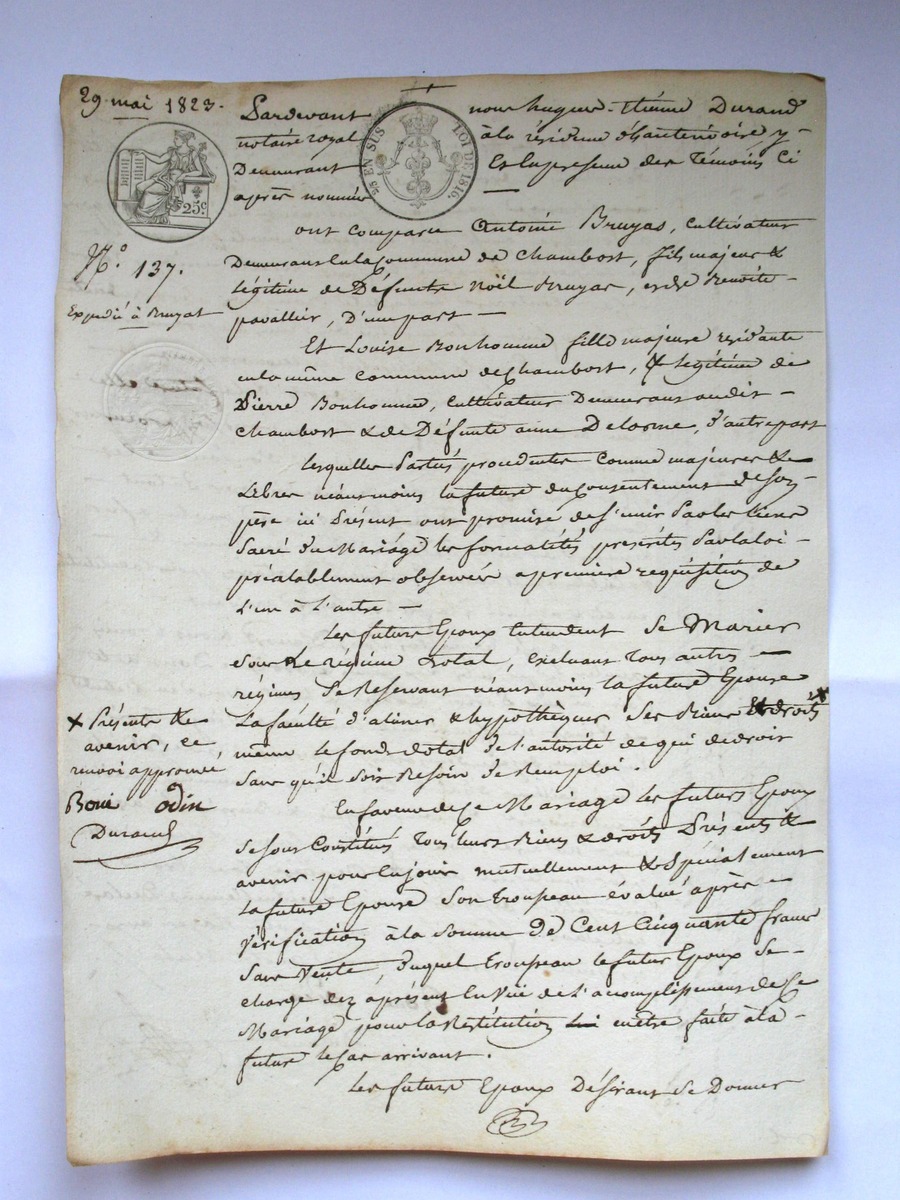 29 mai 1823.
Pardevant nous hugues-Etienne Durand
notaire royal à la résidence d'hauterivoire y
Demeurant Et en presence des Témoins ci
après nommés —
EN SUS
LOI DE 1816.
25c
ont comparu Antoine Bruyas, cultivateur
Demeurant en la Commune de Chambost, fils majeur &
légitime de Défunts Noël Bruyas, et de Benoite
pavallier, D'une part —
N.o 137.
Expedié à Bruyas
Et Louise Bonhomme fille majeure résidante
en la même commune de Chambost, & légitime de
Pierre Bonhomme, cultivateur Demeurant audit —
Chambost & de Défunte anne Delorme, d'autre part
lesquelles Parties procedentes comme majeures &
Libres néanmoins la future du Consentement de son
père ici Présent ont promis de s'unir Par les liens
Sacré du Mariage les formalités prescrites Par la loi —
préalablement observées a premiere réquisition de
L'un à L'autre —
Les futurs Epoux Entendent Se Marier
sous Le régime Dotal, excluant Tous autres —
régimes Se Reservant néanmoins la future Epouse
La faculté d'aliéner & hypothéquer Ses Biens Et droits x
même le fond dotal de l'autorité de qui de droit
Sans qu'il soit Besoin de Remploi.
x Présents &
avenir, ce
renvoi approuvé
Boni odin
Durand
En faveur de Ce Mariage Les futurs Epoux
se sont Constitués Tous leurs Biens & droits Présents &
avenir pour en jouir mutuellement & Spécialement
La future Epouse Son trousseau évalué après —
Vérification à la Somme De Cent Cinquante francs
Sans Vente, duquel Trousseau le futur Epoux Se —
charge dez à présent En Vüe de L'accomplissement de Ce
Mariage pour la Restitution en être faite à la —
future le Cas arrivant.
Les futurs Epoux Désirant Se Donner